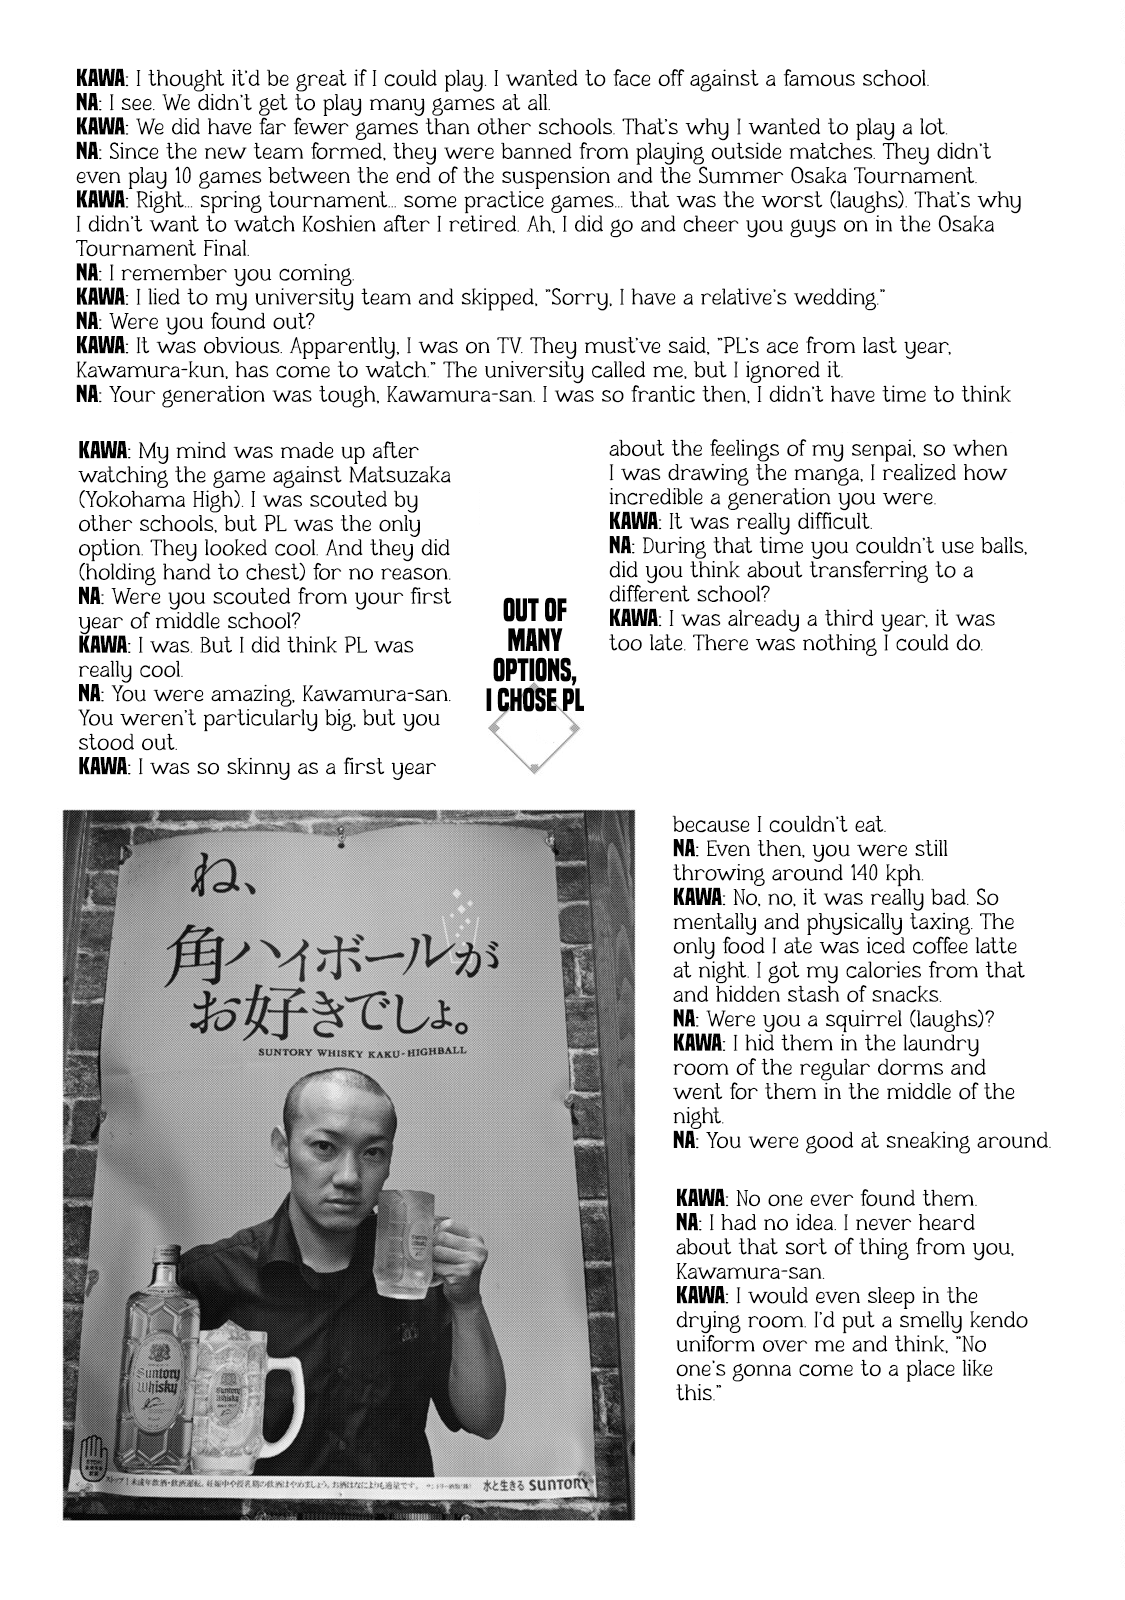 KAWA: I thought it'd be great if I could play. I wanted to face off against a famous school.
NA: I see. We didn't get to play many games at all.
KAWA: We did have far fewer games than other schools. That's why I wanted to play a lot.
NA: Since the new team formed, they were banned from playing outside matches. They didn't
even play 10 games between the end of the suspension and the Summer Osaka Tournament.
KAWA: Right... spring tournament... some practice games... that was the worst (laughs). That's why
I didn't want to watch Koshien after I retired. Ah, I did go and cheer you guys on in the Osaka
Tournament Final.
NA: I remember you coming.
KAWA: I lied to my university team and skipped, "Sorry, I have a relative's wedding."
NA: Were you found out?
KAWA: It was obvious. Apparently, I was on TV. They must've said, "PL's ace from last year,
Kawamura-kun, has come to watch." The university called me, but I ignored it.
NA: Your generation was tough, Kawamura-san. I was so frantic then, I didn't have time to think
about the feelings of my senpai, so when
I was drawing the manga, I realized how
incredible a generation you were.
KAWA: It was really difficult.
NA: During that time you couldn't use balls,
did you think about transferring to a
different school?
KAWA: I was already a third year, it was
too late. There was nothing I could do.
OUT OF
MANY
OPTIONS,
I CHOSE PL
KAWA: My mind was made up after
watching the game against Matsuzaka
(Yokohama High). I was scouted by
other schools, but PL was the only
option. They looked cool. And they did
(holding hand to chest) for no reason.
NA: Were you scouted from your first
year of middle school?
KAWA: I was. But I did think PL was
really cool.
NA: You were amazing, Kawamura-san.
You weren't particularly big, but you
stood out.
KAWA: I was so skinny as a first year
because I couldn't eat.
NA: Even then, you were still
throwing around 140 kph.
KAWA: No, no, it was really bad. So
mentally and physically taxing. The
only food I ate was iced coffee latte
at night. I got my calories from that
and hidden stash of snacks.
NA: Were you a squirrel (laughs)?
KAWA: I hid them in the laundry
room of the regular dorms and
went for them in the middle of the
night.
NA: You were good at sneaking around.
KAWA: No one ever found them.
NA: I had no idea. I never heard
about that sort of thing from you,
Kawamura-san.
KAWA: I would even sleep in the
drying room. I'd put a smelly kendo
uniform over me and think, "No
one's gonna come to a place like
this."
ね、
角ハイボールが
お好きでしょ。
SUNTORY WHISKY KAKU-HIGHBALL
Suntory
Whisky
Suntory
Whisky
ストップ！未成年飲酒・飲酒運転。妊娠中や授乳期の飲酒はやめましょう。お酒はなによりも適量です。
水と生きる SUNTORY